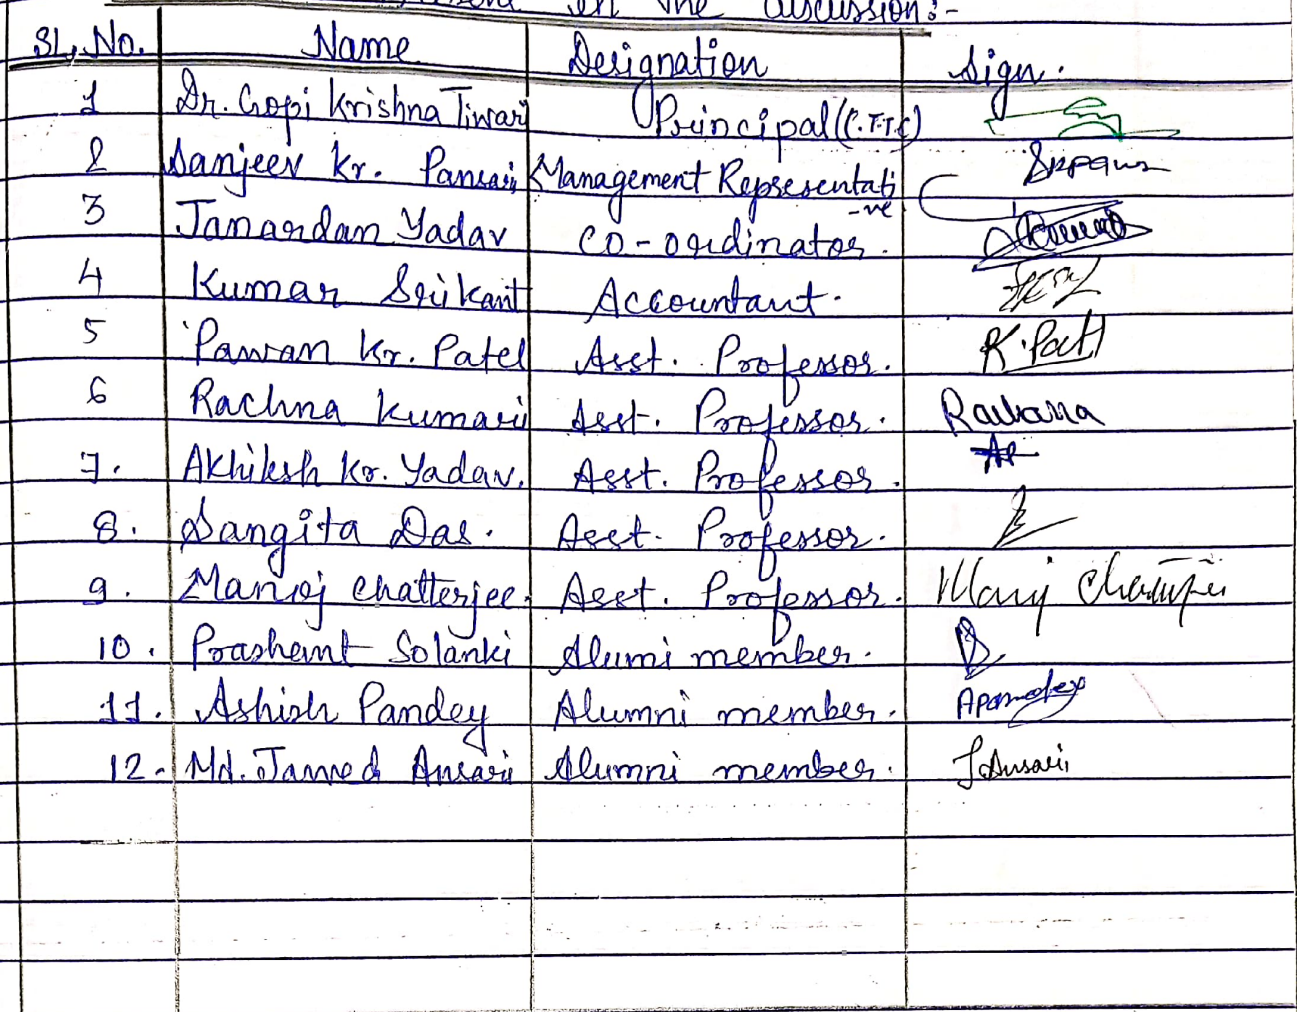 in the discussion:-
Sl, No. Name Designation Sign.
1 Dr. Gopi Krishna Tiwari Principal (C.T.T.C)
2 Sanjeev Kr. Pansari Management Representati
-ve.
3 Janardan Yadav Co-ordinator.
4 Kumar Srikant Accountant.
5 Pawan Kr. Patel Asst. Professor. K. Patel
6 Rachna Kumari Asst. Professor. Rachana
7. Akhilesh Kr. Yadav. Asst. Professor.
8. Sangita Das. Asst. Professor.
9. Manoj Chatterjee. Asst. Professor. Manoj Chatterjee
10. Prashant Solanki Alumi member.
11. Ashish Pandey Alumni member.
12. Md. Jamed Ansari Alumni member. J Ansari